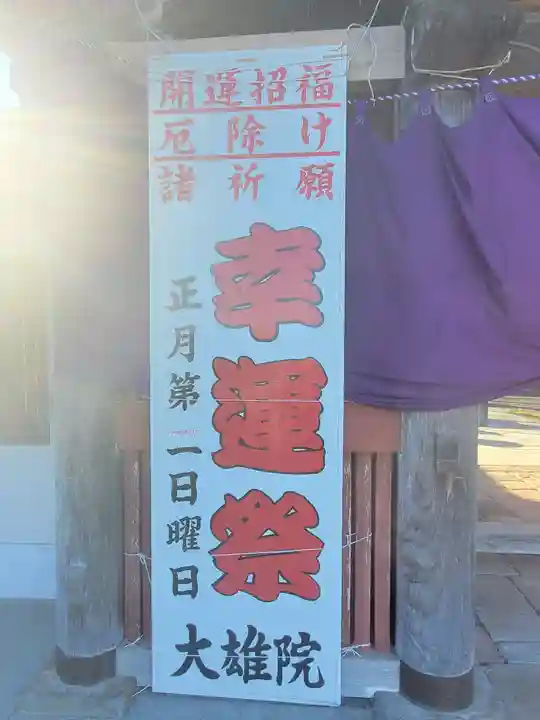 開運招福
厄除け
諸祈願
幸運祭
正月第二日曜日
大雄院